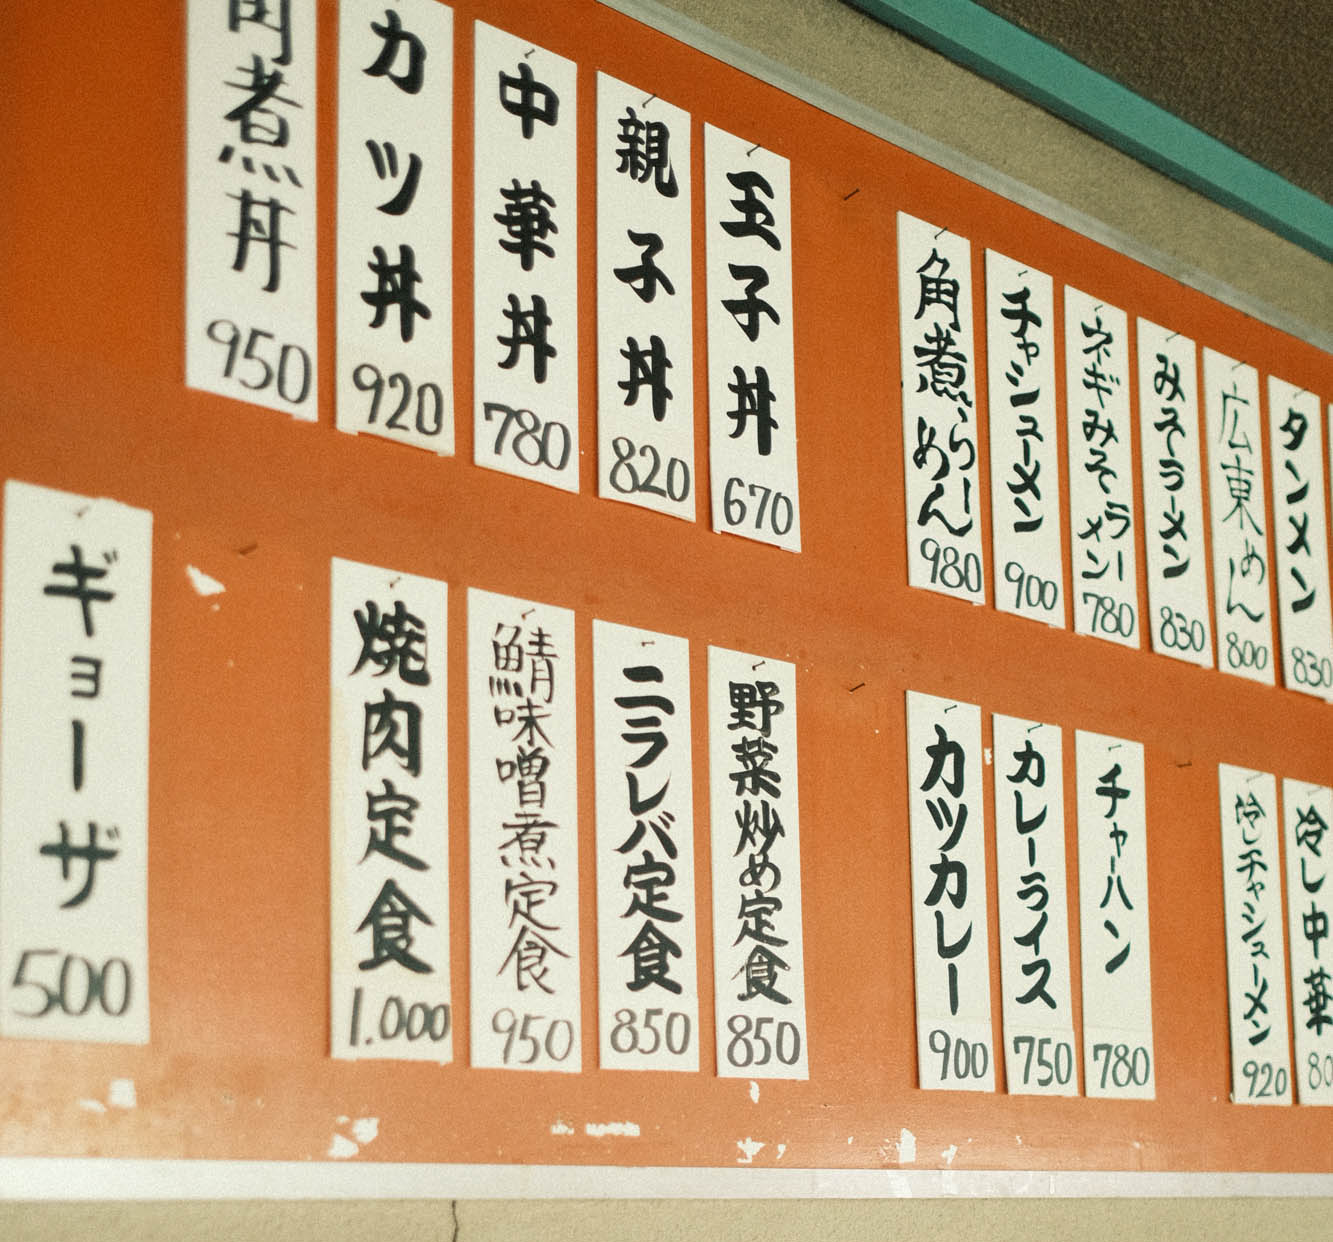 角煮丼 950
カツ丼 920
中華丼 780
親子丼 820
玉子丼 670
角煮らーめん 980
チャシューメン 900
ネギみそラーメン 780
みそラーメン 830
広東めん 800
タンメン 830
ギョーザ 500
焼肉定食 1.000
鯖味噌煮定食 950
ニラレバ定食 850
野菜炒め定食 850
カツカレー 900
カレーライス 750
チャーハン 780
冷しチャシューメン 920
冷し中華 80